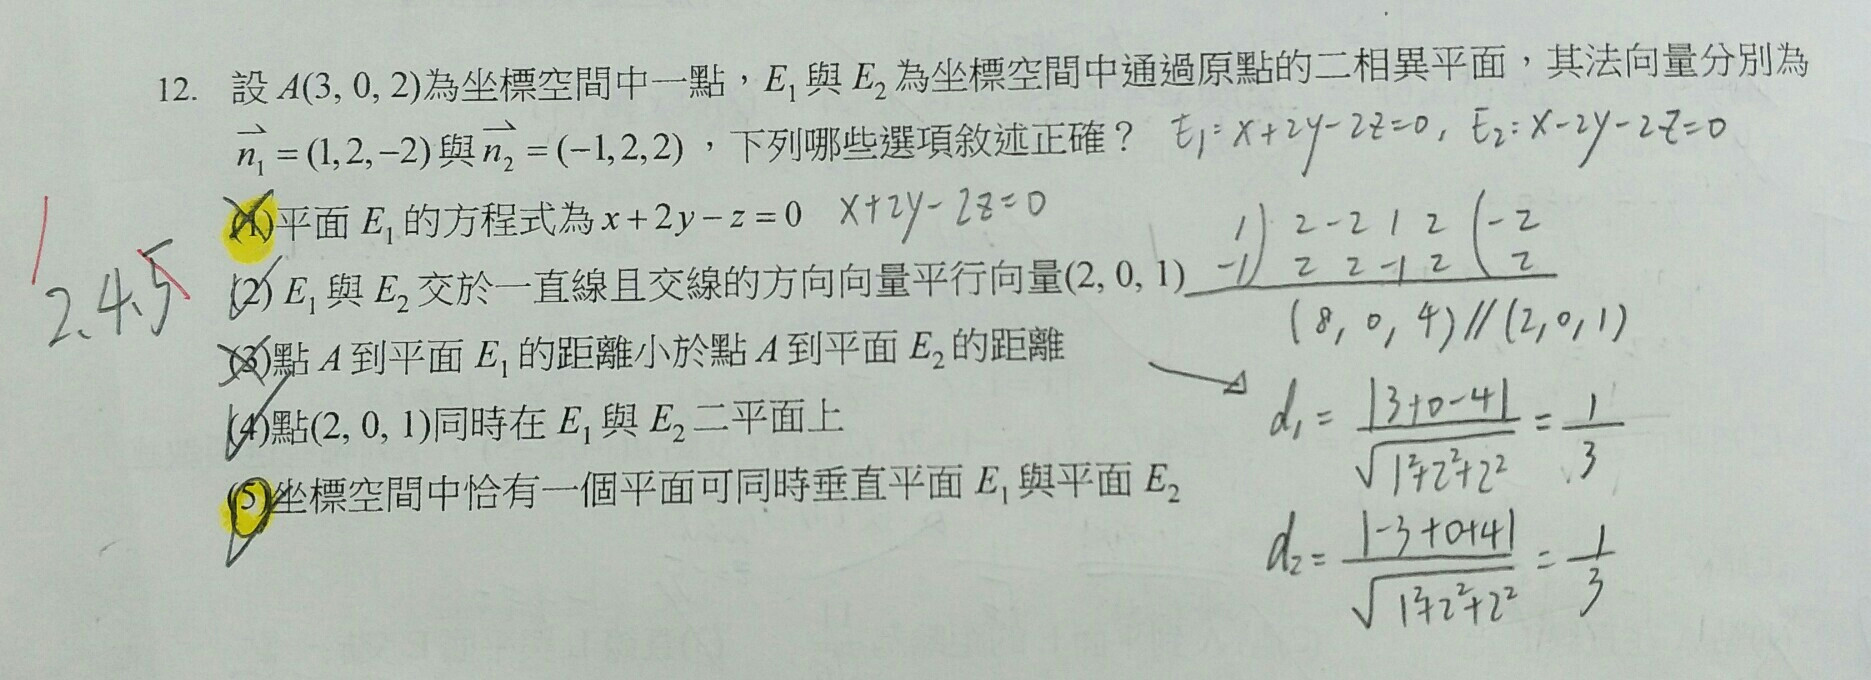 12. 設 A(3, 0, 2)為坐標空間中一點，E₁與 E₂為坐標空間中通過原點的二相異平面，其法向量分別為
n₁ = (1, 2, −2)與 n₂ = (−1, 2, 2)，下列哪些選項敘述正確？ E₁: x+2y-2z=0, E₂: x-2y-2z=0
(1)平面 E₁的方程式為 x + 2y − z = 0 x+2y-2z=0
1) 2 -2 1 2 (-2
-1) 2 2 -1 2 (2
1
2.4.5
(2) E₁與 E₂交於一直線且交線的方向向量平行向量(2, 0, 1)
(8, 0, 4)//(2,0,1)
(3)點 A 到平面 E₁的距離小於點 A 到平面 E₂的距離
d₁ = |3+0-4| / √1²+2²+2² = 1/3
(4)點(2, 0, 1)同時在 E₁與 E₂二平面上
(5)坐標空間中恰有一個平面可同時垂直平面 E₁與平面 E₂
d₂ = |-3+0+4| / √1²+2²+2² = 1/3